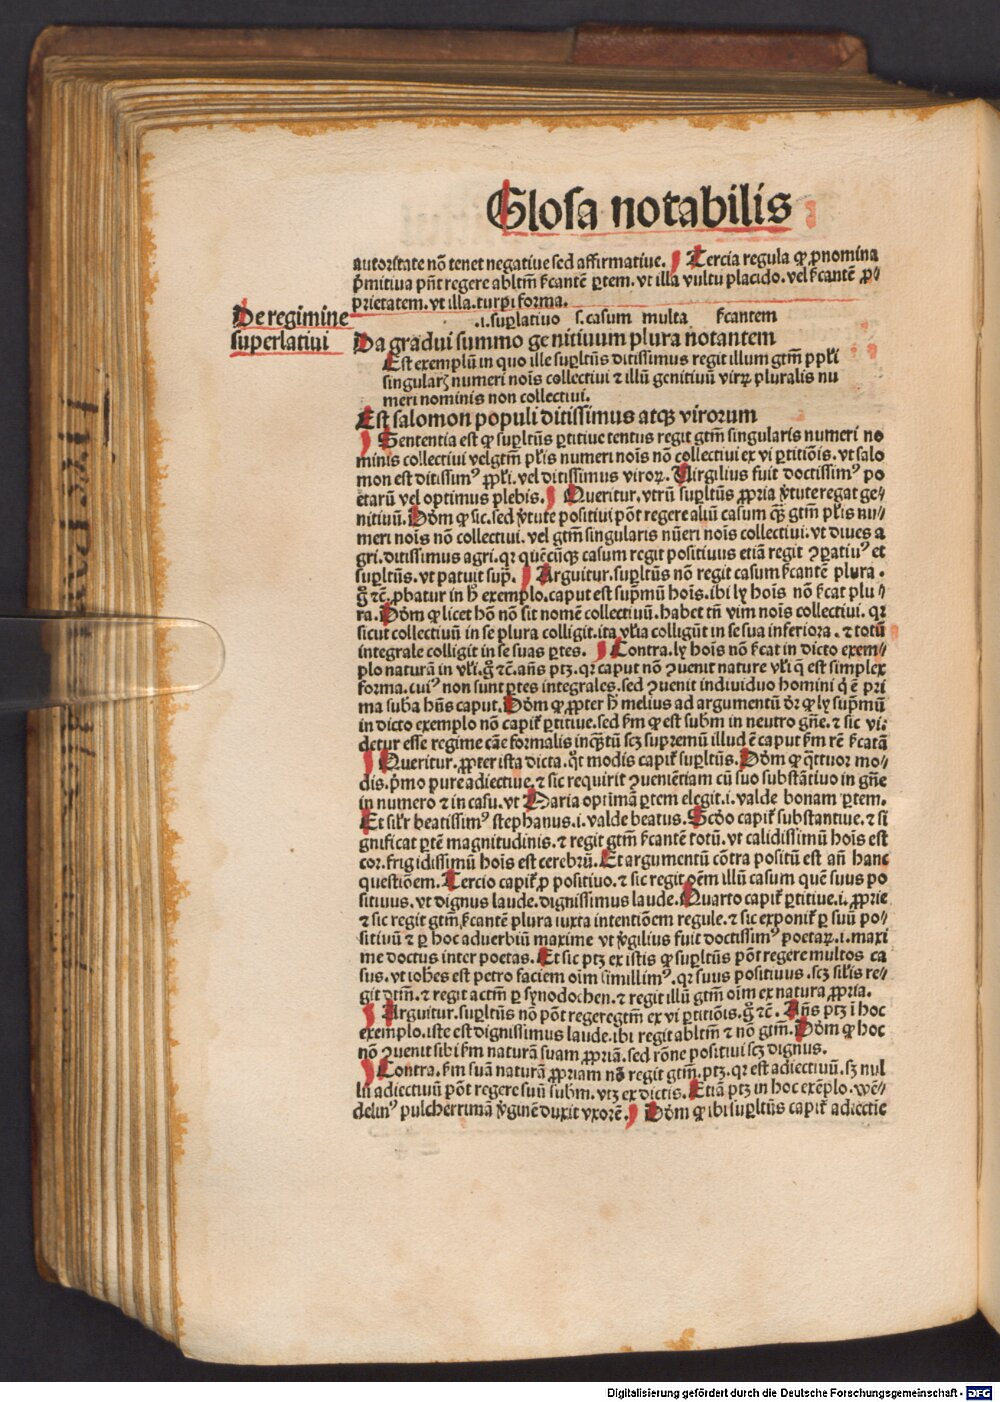 Glosa notabilis
autoritate nō tenet negatiue sed affirmatiue. Tercia regula ꝙ ꝓnomina
p̄mitiua pn̄t regere abltm̄ ẜcantē ꝑtem. vt illa vultu placido. vel ẜcantē ꝓ⸗
prietatem. vt illa turpi forma.
De regimine
superlatiui
.i. suꝑlatiuo s. casum multa ẜcantem
Da gradui summo ge nitiuum plura notantem
Est exemplū in quo ille suꝑltūs ditissimus regit illum gtm̄ ppl̄i
singularꝭ numeri nois̄ collectiui ⁊ illū genitiuū viroꝝ pluralis nu
meri nominis non collectiui.
Est salomon populi ditissimus atqꝫ virorum
Sententia est ꝙ suꝑltūs ꝑtitiue tentus regit gtm̄ singularis numeri no
minis collectiui vel gtm̄ pl̄is numeri nois̄ nō collectiui ex vi ꝑtitiōis. vt salo
mon est ditissimꝰ ꝓpl̄i. vel ditissimus viroꝝ. Virgilius fuit doctissimꝰ po
etarū vel optimus plebis. Queritur. vtrū suꝑltūs ꝓpria v̄tute regat ge⸗
nitiuū. Dōm ꝙ sic. sed v̄tute positiui pōt regere aliū casum qꝫ̄ gtm̄ pl̄is nu⸗
meri nois̄ nō collectiui. vel gtm̄ singularis nūeri nois̄ collectiui. vt diues a
gri. ditissimus agri. qr quēcūqꝫ casum regit positiuus etiā regit ꝯꝑatiuꝰ et
suꝑltūs. vt patuit sup̄. Arguitur. suꝑltūs nō regit casum ẜcantē plura.
g̊ ⁊c̄. ꝓbatur in h̄ exemplo. caput est supm̄ū hois̄. ibi ly hois̄ nō ẜcat plu⸗
ra. Dōm ꝙ licet hō nō sit nomē collectiuū. habet tn̄ vim nois̄ collectiui. qr
sicut collectiuū in se plura colligit. ita vl̄ia colligūt in se sua inferiora. ⁊ totū
integrale colligit in se suas ꝑtes. Contra. ly hois̄ nō ẜcat in dicto exem⸗
plo naturā in vl̄i. g̊ ⁊c̄. an̄s ptꝫ. qr caput nō ꝯuenit nature vl̄i q̄ est simplex
forma. cuiꝰ non sunt ꝑtes integrales. sed ꝯuenit indiuiduo homini q̄ ē pri
ma suba hn̄s caput. Dōm ꝙ ꝓpter h̄ melius ad argumentū dr̄ ꝙ ly supm̄ū
in dicto exemplo nō capit̄ ꝑtitiue. sed ẜm ꝙ est subm̄ in neutro gn̄e. ⁊ sic vi⸗
detur esse regimē cāe formalis inqꝫ̄tū scꝫ supremū illud ē caput ẜm rē ẜcatā
Queritur. ꝓpter ista dicta. qͦt modis capit̄ suꝑltūs. Dōm ꝙ qͣttuor mo⸗
dis. p̄mo pure adiectiue. ⁊ sic requirit ꝯueniētiam cū suo substātiuo in gn̄e
in numero ⁊ in casu. vt Maria optimā ꝑtem elegit. i. valde bonam ꝑtem.
Et sil̄r beatissimꝰ stephanus. i. valde beatus. Scd̄o capit̄ substantiue. ⁊ si
gnificat ꝑtē magnitudinis. ⁊ regit gtm̄ ẜcantē totū. vt calidissimū hois̄ est
cor. frigidissimū hois̄ est cerebrū. Et argumentū cōtra positū est an̄ hanc
questiōem. Tercio capit̄ ꝓ positiuo. ⁊ sic regit oēm illū casum quē suus po
situus. vt dignus laude. dignissimus laude. Quarto capit̄ ꝑtitiue. i. ꝓprie
⁊ sic regit gtm̄ ẜcantē plura iuxta intentiōem regule. ⁊ sic exponit̄ ꝑ suū po⸗
sitiuū ⁊ ꝑ hoc aduerbiū maxime vt v̄gilius fuit doctissimꝰ poetaꝝ. i. maxi
me doctus inter poetas. Et sic ptꝫ ex istis ꝙ suꝑltūs pōt regere multos ca
sus. vt ioh̄es est petro faciem oīm simillimꝰ. qr suus positiuus. scꝫ sil̄is re⸗
git dtm̄. ⁊ regit actm̄ ꝑ synodochen. ⁊ regit illū gtm̄ oīm ex natura ꝓpria.
Arguitur. suꝑltūs nō pōt regere gtm̄ ex vi ꝑtitiōis. g̊ ⁊c̄. An̄s ptꝫ ī hoc
exemplo. iste est dignissimus laude. ibi regit abltm̄ ⁊ nō gtm̄. Dōm ꝙ hoc
nō ꝯuenit sibi ẜm naturā suam ꝓpriā. sed rōne positiui scꝫ dignus.
Contra. ẜm suā naturā ꝓpriam nō regit gtm̄. ptꝫ. qr est adiectiuū. sꝫ nul
lū adiectiuū pōt regere suū subm̄. vtꝫ ex dictis. Etiā ptꝫ in hoc exēplo. wē⸗
delinꝰ pulcherrimā v̄ginē duxit vxorē. Dōm ꝙ ibi suꝑltūs capit̄ adiectie
Digitalisierung gefördert durch die Deutsche Forschungsgemeinschaft - DFG